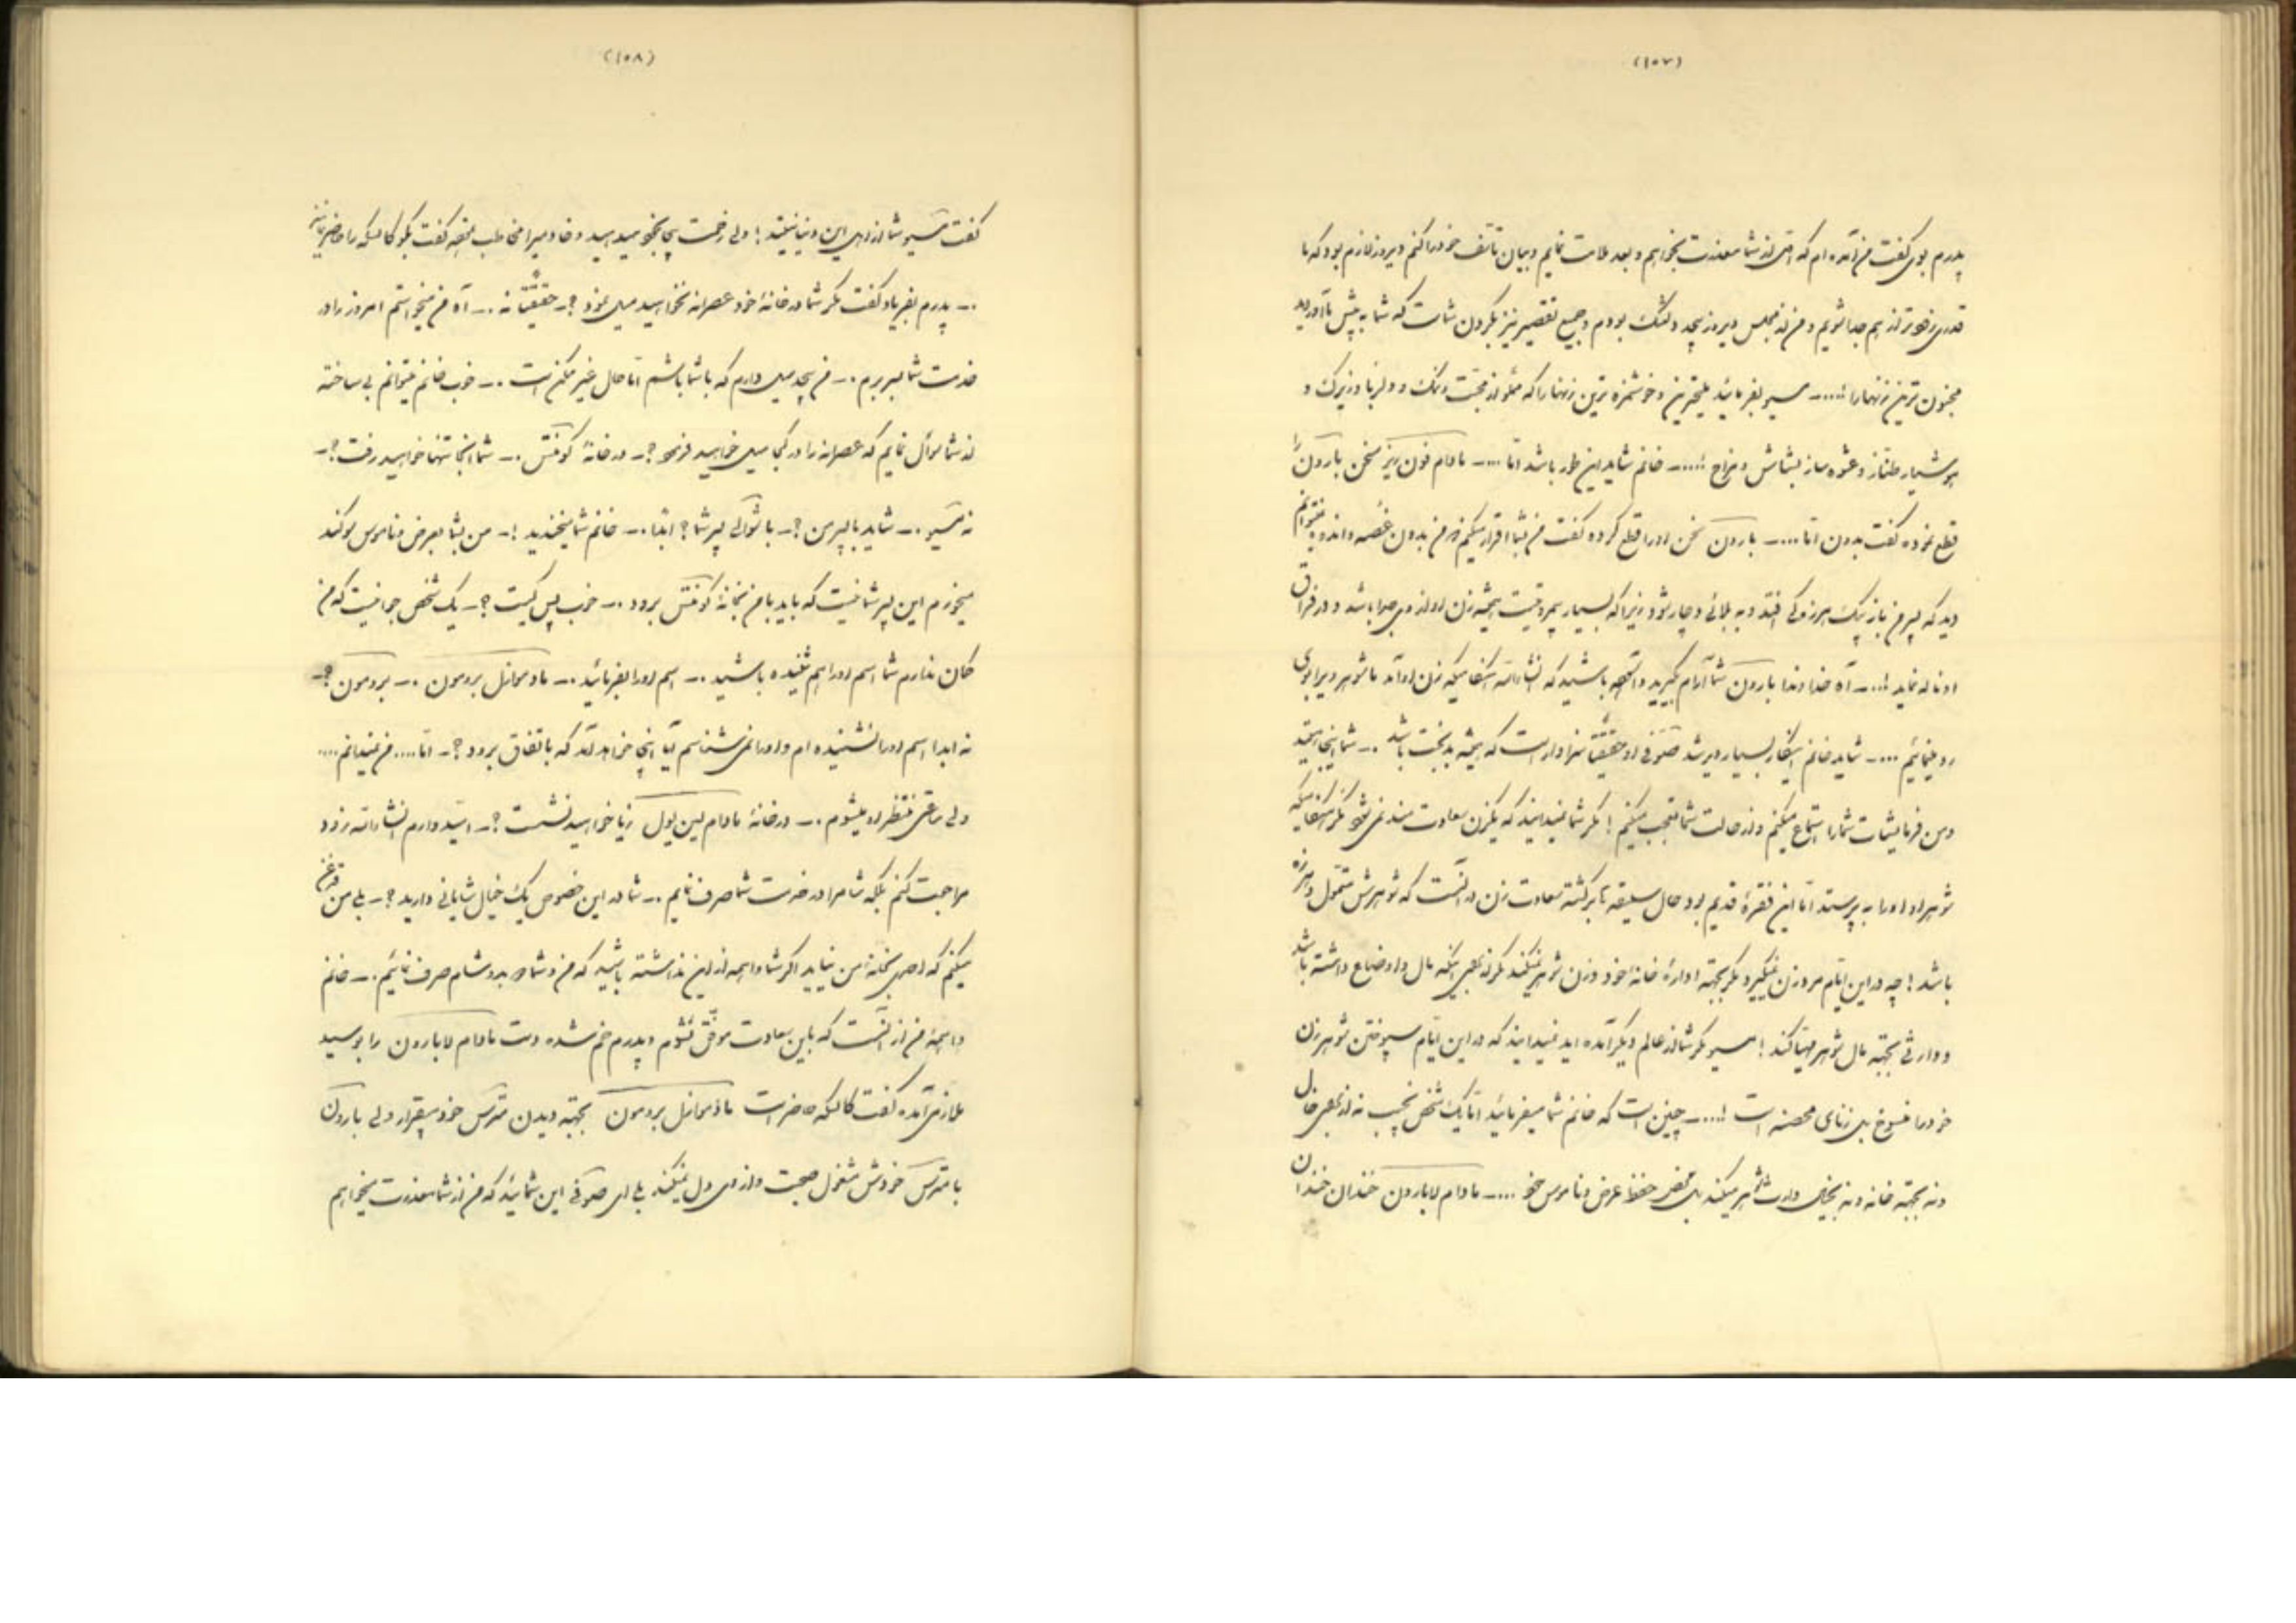 (۱۰۷)
پدرم بوی گفت من آمده ام که اولا از شما معذرت بخواهم و بعد ملامت نمایم و بیان تأسف خود را کنم دیروز لازم بود که ما
قدری زودتر از هم جدا شویم و من از مجلس دیروز بیحد دلتنگ بودم و جمیع تقصیر نیز بگردن شماست که شما به پیش ما آوردید
مجنون ترین زنهارا!.... ــ مسیو بفرمائید ملیحترین و خوشمزه ترین زنهارا که مملو از محبت و نمک و دلربا و زیرک و
هوشیار طناز و عشوه ساز بشاش و مزاح!.... ــ خانم شاید این طور باشد اما .... ــ مادام فون ریز سخن بارون را
قطع نموده گفت بدون اما .... ــ بارون سخن اورا قطع کرده گفت من بشما اقرار میکنم که من بدون غصه و اندوه نمیتوانم
دید که پسر من باز بیک هرزه گی افتد و به بلائی دچار شود زیرا که بسیار بیمروتیست همیشه زن او از وی جدا باشد و در فراق
او ناله نماید!... ــ آه خداوندا بارون شما آرام بگیرید و آسوده باشید که انشاءالله هنگامیکه زن او آمد ما شوهر ویرا بوی
رد مینمائیم .... ــ شاید خانم اینکار بسیار دیر شد صوفی او حقیقتا سزاوار است که همیشه بدبخت باشد .ــ شما اینجا هستید
و من فرمایشات شمارا استماع میکنم و از حالت شما تعجب میکنم! مگر شما نمیدانید که یکزن سعادت مند نمی شود مگر هنگامیکه
شوهر او اورا به پرستد اما این فقره قدیم بود حال سلیقه تا برگشته سعادت زن در آنست که شوهرش متمول و هرزه
باشد! چه در این ایام مرد زن نمیگیرد مگر بجهته اداره خانه خود و زن شوهر نمیکند مگر از برای اینکه مال و اوضاع داشته باشد
و وارثی بجهته مال شوهر مهیا کند! مسیو مگر شما از عالم دیگر آمده اید نمیدانید که در این ایام سپوختن شوهر زن
خود را منسوخ بل زنای محصنه است!.... ــ چنین است که خانم شما میفرمائید اما یک شخص نجیب نه از برای مال
و نه بجهته خانه و نه بخیال وارث شوهر میکند بل محض حفظ عرض و ناموس خود .... ــ مادام لابارون خندان خندان
(۱۰۸)
گفت مسیو شما از اهل این دنیا نیستید! ولی زحمت بیجا بخود میدهید و خادمیرا مخاطب ساخته گفت بگو کالسکه را حاضر نمایند
.ــ پدرم بفریاد گفت مگر شما در خانهٔ خود عصرانه نخواهید میل نمود؟ــ حقیقتا نه .ــ آه من میخواستم امروز را در
خدمت شما بسر برم .ــ من بیحد میل دارم که با شما باشم اما حال غیر ممکن است .ــ خوب خانم میتوانم بی ساخته
از شما سؤال نمایم که عصرانه را در کجا میل خواهید فرمود؟ــ در خانهٔ کونتس .ــ شما آنجا تنها خواهید رفت؟ــ
نه مسیو .ــ شاید با پسر من؟ــ با شوالی پسر شما؟ ابدا .ــ خانم شما میخندید!ــ من بشما بعرض و ناموس سوگند
میخورم این پسر شما نیست که باید با من بخانهٔ کونتس برود .ــ خوب پس کیست؟ــ یک شخص جوانیست که من
گمان ندارم شما اسم اورا هم شنیده باشید .ــ اسم اورا بفرمائید .ــ مادموازل برومون .ــ برومون؟ــ
نه ابدا اسم اورا نشنیده ام و اورا نمی شناسم آیا اینجا خواهد آمد که باتفاق بروید؟ــ اما.... من نمیدانم....
ولی ساعتی منتظر او میشوم .ــ در خانهٔ مادام لین یول زیاد خواهید نشست؟ــ امید دارم انشاءالله زود
مراجعت کنم بلکه شام را در خدمت شما صرف نمایم .ــ شما در این خصوص یک خیال شایانی دارید؟ــ بلی من قدغن
میکنم که احدی بخانهٔ من نیاید اگر شما واهمه از این نداشته باشید که من و شما هر دو شام صرف نمائیم .ــ خانم
واهمه من از آنست که باین سعادت موفق نشوم و پدرم خم شده دست مادام لابارون را بوسید
ملازمی آمده گفت کالسکه حاضر است مادموازل برومون بجهته دیدن مترس خود بیقرار ولی بارون
با مترس خودش مشغول صحبت و از وی دل نمیکند بلی ای صوفی این شمائید که من از شما معذرت میخواهم